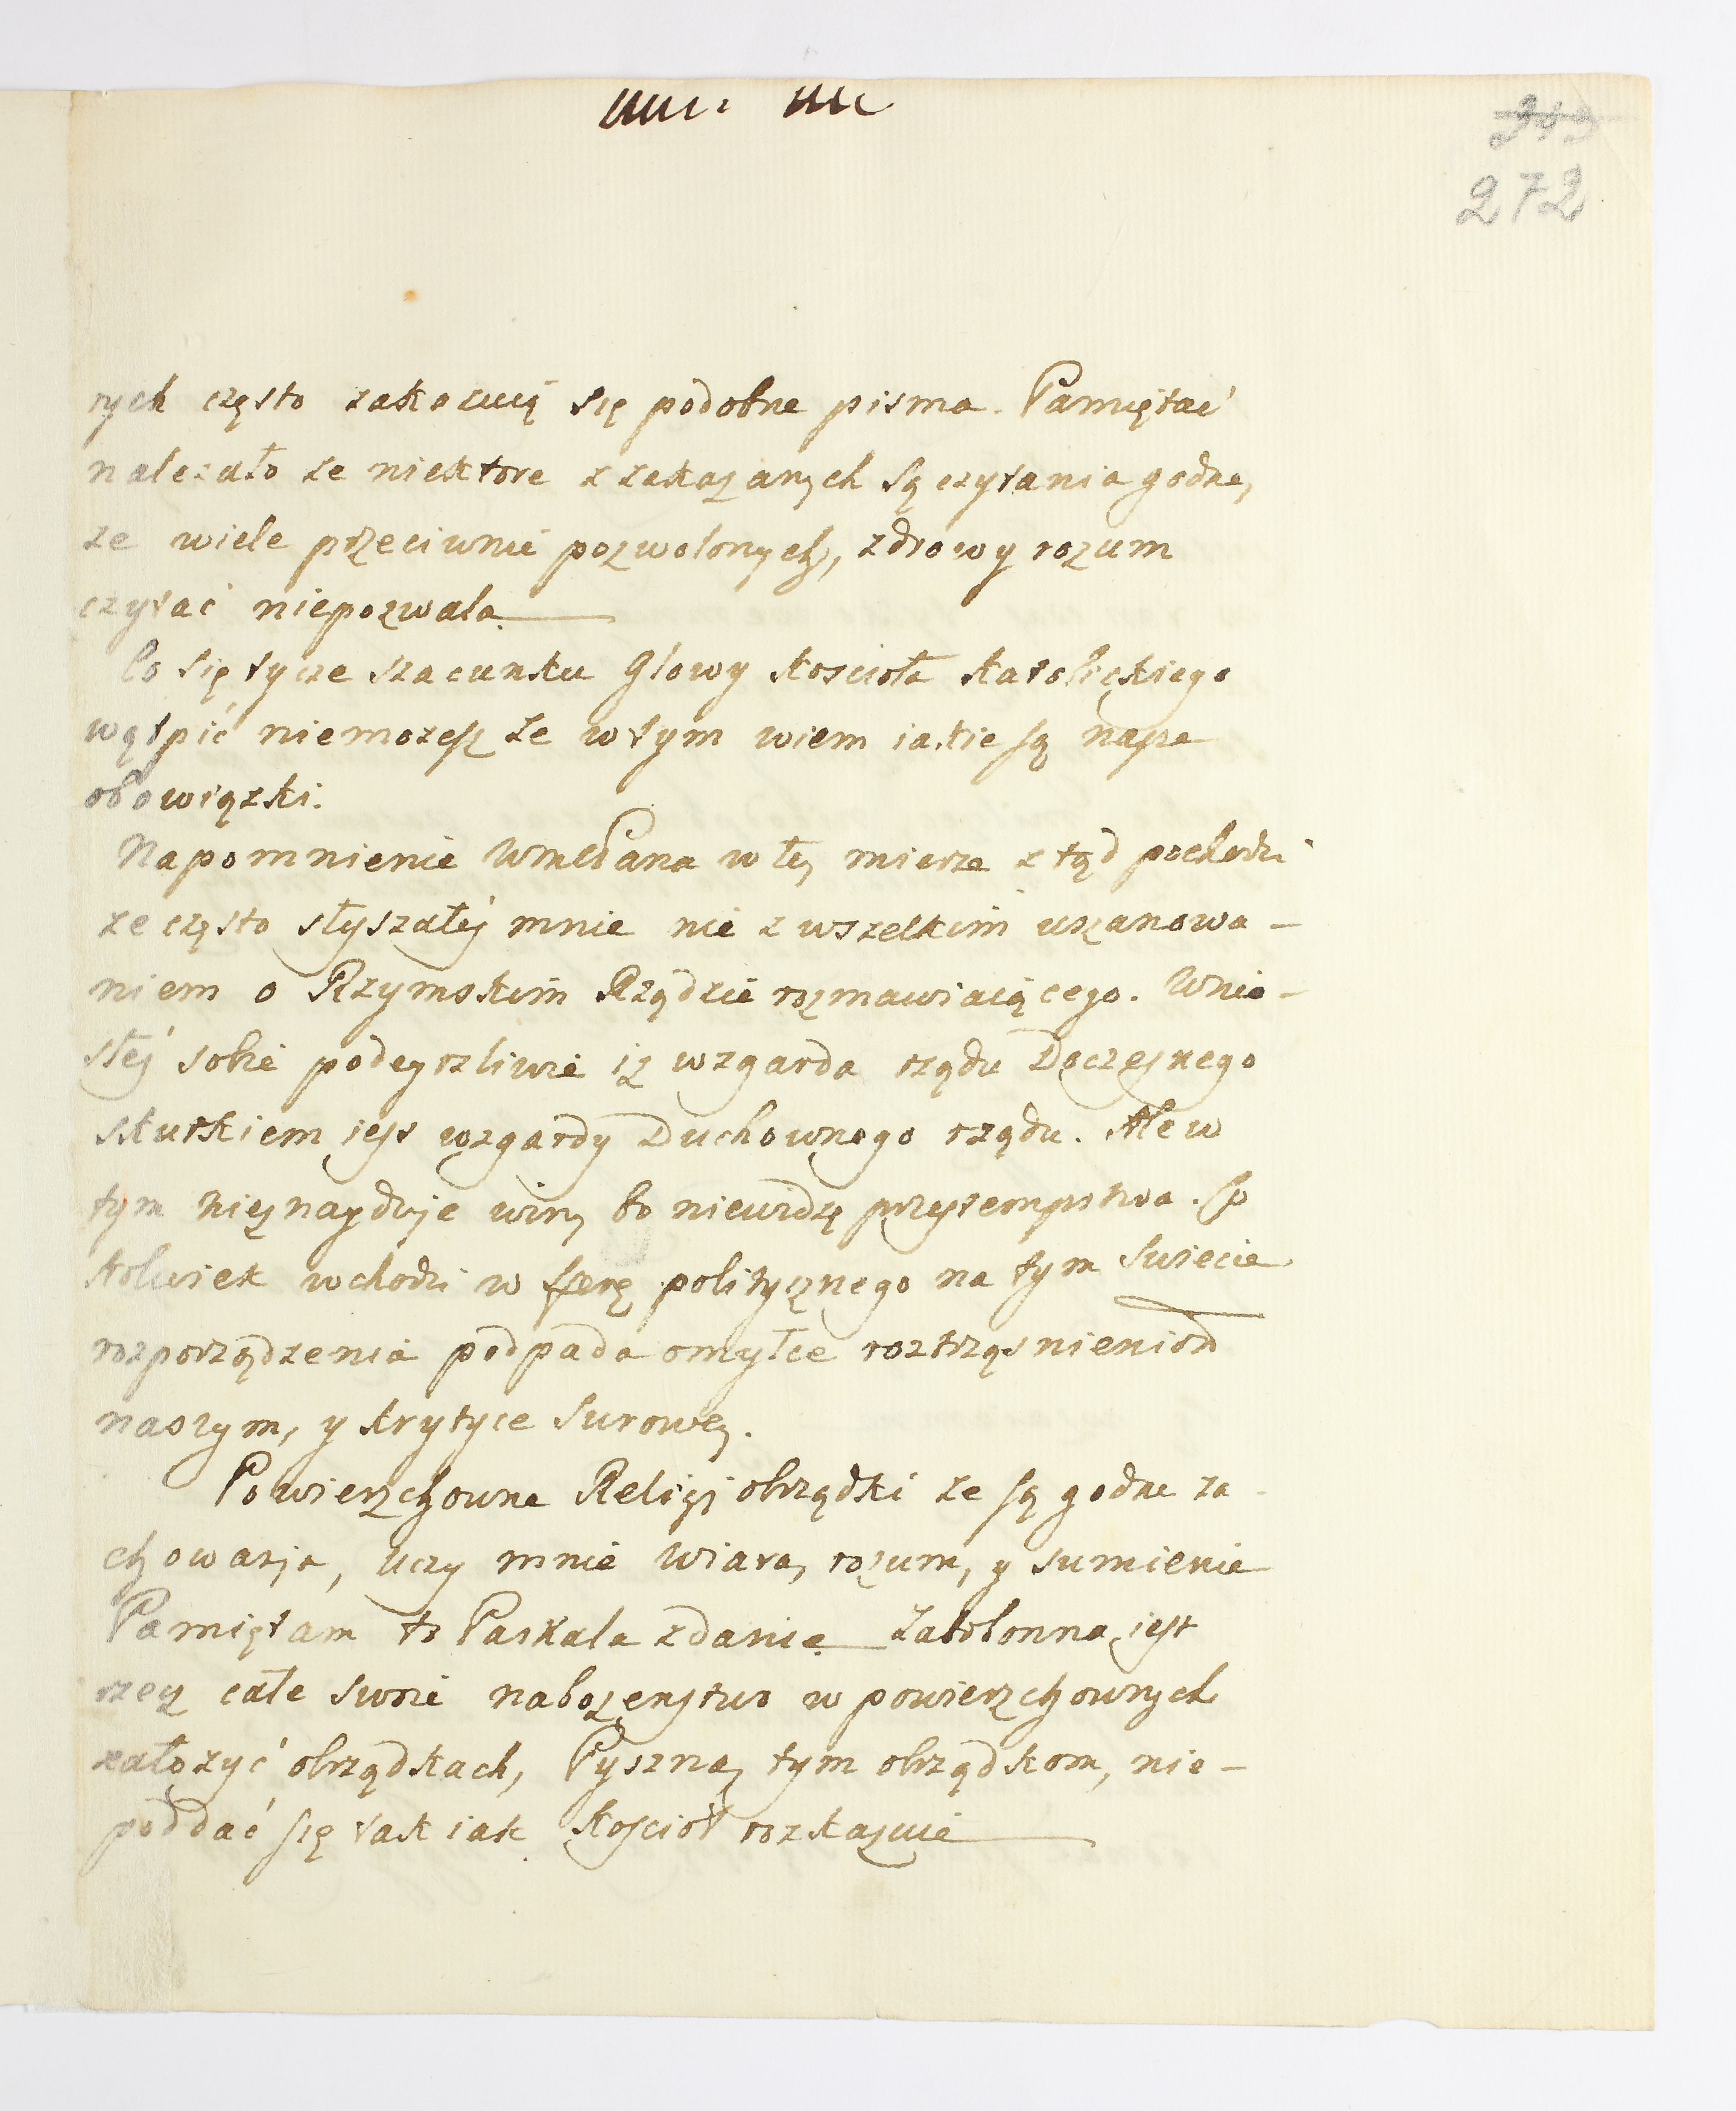 272
rych często zakazuią się podobne pisma. Pamiętać
nalezało ze niektore z zakazanych są czytania godne,
ze wiele przeciwnie pozwolonych, zdrowy rozum
czytać niepozwala
Co się tycze szacunku Głowy koscioła katolickiego
wątpić niemozesz ze w tym wiem iakie są nasze
obowiązki.
Napomnienie WmcPana w tey mierze z tąd pochodzi
ze często słyszałeś mnie nie z wszelkim uszanowa-
niem o Rzymskim Rządzie rozmawiaiącego. Wnio-
słeś sobie podeyrzliwie iz wzgarda rządu Doczesnego
skutkiem iest wzgardy Duchownego rządu. Ale w
tym nieznayduję winy bo niewidzę przestempstwa. Co
kolwiek wchodzi w sferę politycznego na tym Swiecie
rozporządzenia podpada omyłce roztrząsnieniom
naszym, y krytyce Surowey.
Powierzchowne Religii obrządki ze są godne za-
chowania, uczy mnie Wiara, rozum, y sumienie
Pamiętam to Paskala zdanie Zabobonna iest
rzecz całe swoie nabozenstwo w powierzchownych
załozyć obrządkach, Pyszna, tym obrządkom, nie-
poddać się tak iak Kościoł rozkazuie